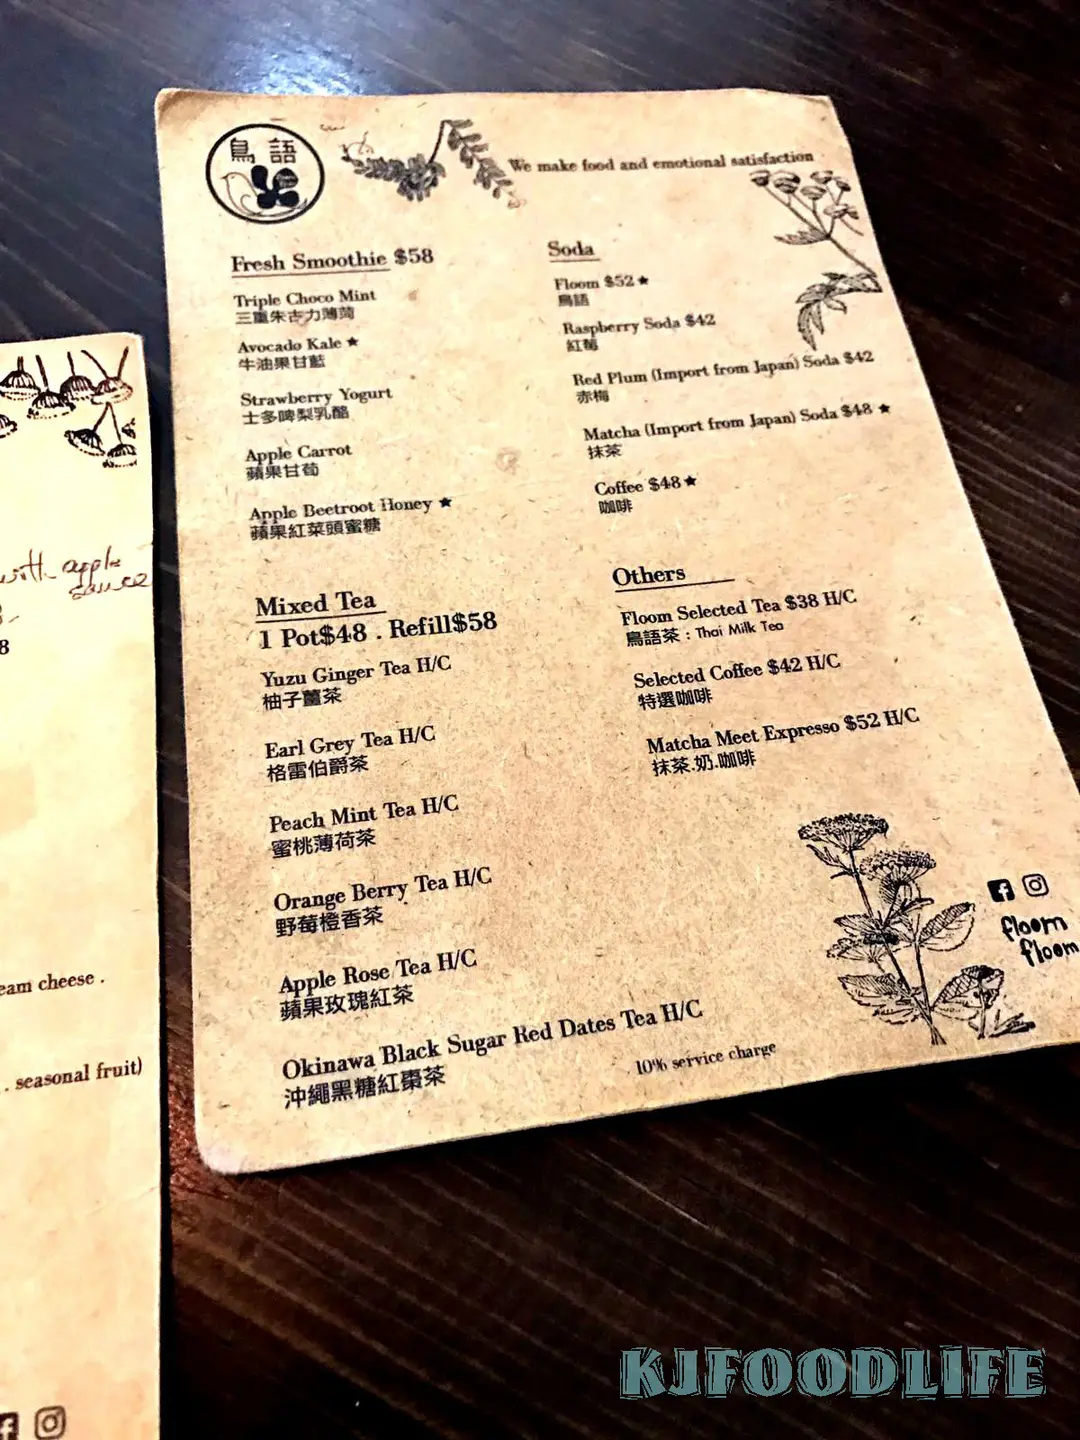 鳥語
We make food and emotional satisfaction
Fresh Smoothie $58
Triple Choco Mint
三重朱古力薄荷
Avocado Kale ★
牛油果甘藍
Strawberry Yogurt
士多啤梨乳酪
Apple Carrot
蘋果甘荀
Apple Beetroot Honey ★
蘋果紅菜頭蜜糖
Mixed Tea
1 Pot$48 . Refill$58
Yuzu Ginger Tea H/C
柚子薑茶
Earl Grey Tea H/C
格雷伯爵茶
Peach Mint Tea H/C
蜜桃薄荷茶
Orange Berry Tea H/C
野莓橙香茶
Apple Rose Tea H/C
蘋果玫瑰紅茶
Okinawa Black Sugar Red Dates Tea H/C
沖繩黑糖紅棗茶
Soda
Floom $52 ★
鳥語
Raspberry Soda $42
紅莓
Red Plum (Import from Japan) Soda $42
赤梅
Matcha (Import from Japan) Soda $48 ★
抹茶
Coffee $48 ★
咖啡
Others
Floom Selected Tea $38 H/C
鳥語茶 : Thai Milk Tea
Selected Coffee $42 H/C
特選咖啡
Matcha Meet Expresso $52 H/C
抹茶.奶.咖啡
floom
floom
10% service charge
with apple
sauce
8
eam cheese .
. seasonal fruit)
KJFOODLIFE